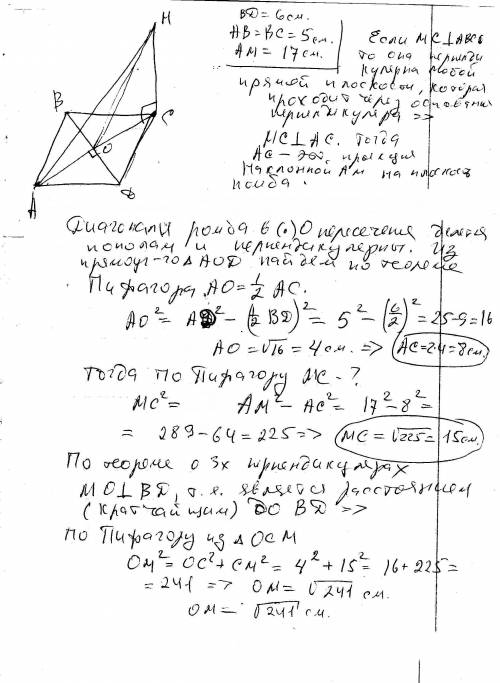 M
B
C
O
A
D
BD = 6 см.
AB = BC = 5 см.
AM = 17 см.
Если MC⊥ABCD
то она перпенди
кулярна любой
прямой плоскости, которая
проходит через основание
перпендикуляра =>
MC⊥AC. Тогда
AC – проекция
наклонной AM на плоскость
ромба.
Диагонали ромба в (·) O пересечения делятся
пополам и перпендикулярны. Из
прямоуг-го Δ AOD найдем по теореме
Пифагора AO = 1/2 AC.
AO² = AD² – (1/2 BD)² = 5² – (6/2)² = 25-9 = 16
AO = √16 = 4 см. => AC = 2·4 = 8 см.
Тогда по Пифагору MC - ?
MC² = AM² – AC² = 17² – 8² =
= 289 – 64 = 225 => MC = √225 = 15 см.
По теореме о 3х перпендикулярах
MO⊥BD, т.е. является расстоянием
(кратчайшим) до BD =>
по Пифагору из Δ OCM
OM² = OC² + CM² = 4² + 15² = 16 + 225 =
= 241 => OM = √241 см.
OM = √241 см.